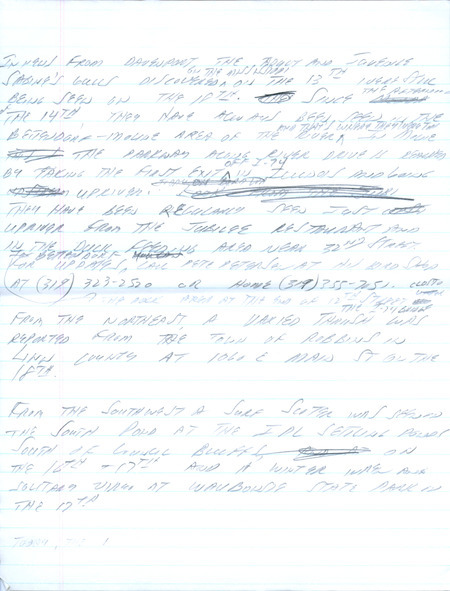 IN NEWS FROM DAVENPORT THE ADULT AND IMMATURE
ON THE MISSISSIPPI
SABINE'S GULLS DISCOVERED ON THE 13TH WERE STILL
BEING SEEN ON THE 18TH. SINCE
THE 14TH THEY HAVE ALWAYS BEEN SEEN IN THE
BETTENDORF-MOLINE AREA OF THE RIVER. IN MOLINE
THE PARKWAY ALONG RIVER DRIVE IS REACHED
OFF I-74
BY TAKING THE FIRST EXIT IN ILLINOIS AND GOING
UPRIVER.
THEY HAVE BEEN REGULARLY SEEN JUST
UPRIVER FROM THE JUBILEE RESTAURANT AND
IN THE DUCK FEEDING AREA NEAR 32ND STREET
IN BETTENDORF
FOR UPDATES, CALL PETE PETERSEN AT HIS BIRD SHOP
AT (319) OR HOME (319) 355-7051.
THE DOCK AREA AT THE END OF 15TH ST
THE I-74 BRIDGE
FROM THE NORTHEAST, A VARIED THRUSH WAS
REPORTED FROM THE TOWN OF ROBBINS IN
LINN COUNTY AT 1060 E MAIN ST ON THE
18TH.
FROM THE SOUTHWEST A SURF SCOTER WAS SEEN ON
THE SOUTH POND AT THE IPL SETTLING PONDS
SOUTH OF COUNCIL BLUFFS ON
THE 16TH + 17TH AND A WINTER WREN AND
SOLITARY VIREO AT WAUBONSIE STATE PARK ON
THE 17TH